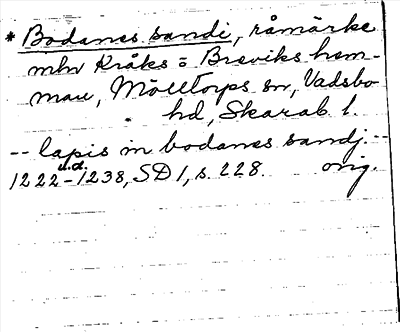 * Bodanes sandi, råmärke
mln Kråks o Breviks hem-
man, Mölltorps sn, Vadsbo
hd, Skarab. l.
-- lapis in bodanes sandj. --
1222 u.d. - 1238, SD 1, s. 228. orig.